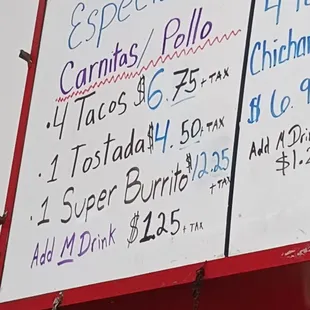 Carnitas/Pollo
. 4 Tacos $6.75 + TAX
. 1 Tostada $4.50 + TAX
. 1 Super Burrito $12.25
+ TAX
Add M Drink $1.25 + TAX
Add M Dr